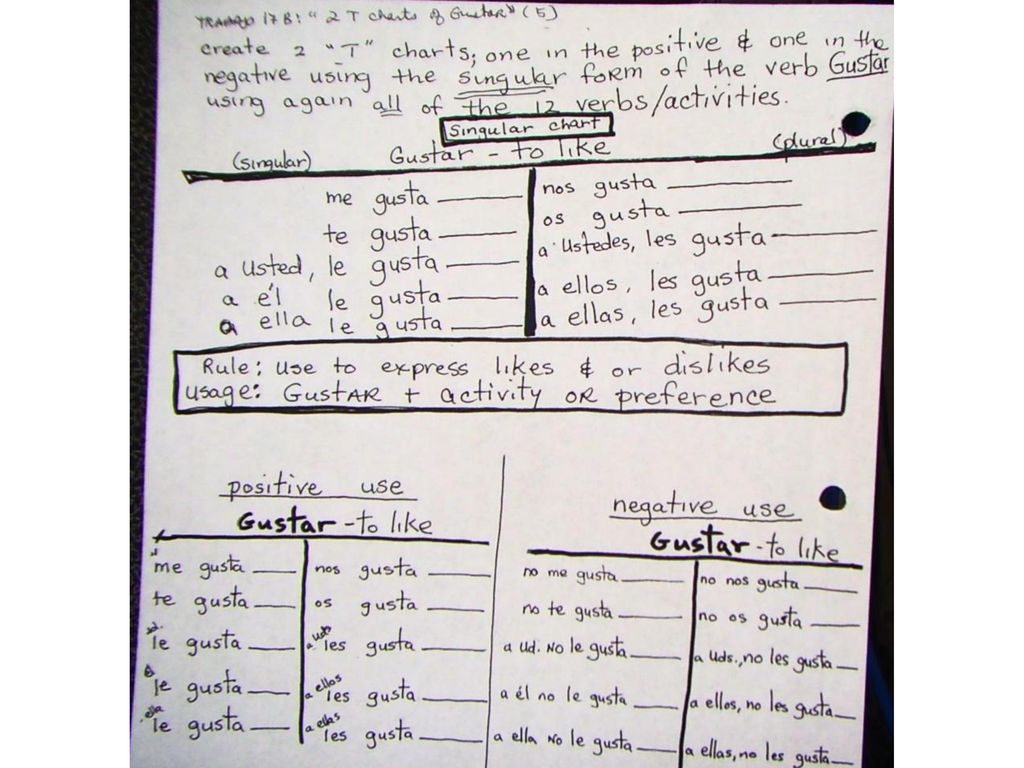 TRABAJO 17 B: "2 T charts of Gustar" (5)
create 2 "T" charts; one in the positive & one in the
negative using the singular form of the verb Gustar
using again all of the 12 verbs/activities.
Singular chart
(singular) Gustar - to like (plural)
me gusta nos gusta
te gusta os gusta
a usted, le gusta a ustedes, les gusta
a él le gusta a ellos, les gusta
a ella le gusta a ellas, les gusta
Rule: use to express likes & or dislikes
usage: GustAR + activity OR preference
positive use
Gustar - to like
me gusta nos gusta
te gusta os gusta
le gusta a uds les gusta
él le gusta a ellos les gusta
ella le gusta a ellas les gusta
negative use
Gustar - to like
no me gusta no nos gusta
no te gusta no os gusta
a ud. no le gusta a uds., no les gusta
a él no le gusta a ellos, no les gusta
a ella no le gusta a ellas, no les gusta